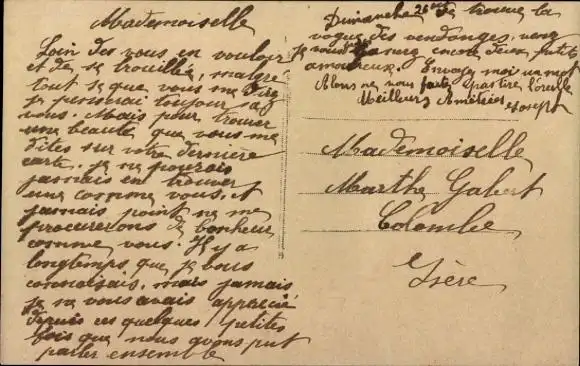 Mademoiselle
Loin de vous en vouloir
et de se trouillé, malgre
tout se que vous me dire
je penserai toujour
vous. Mais pour trouver
une beauté que vous me
dites sur votre dernière
carte. je ne pourais
jamais en trouver
une comme vous. et
jamais point ne me
procurerons de bonheur
comme vous. Il y a
longtemps que je vous
connaisais, mais jamais
je ne vous avais apprécié
depuis ces quelques petites
fois que nous avons put
parler ensemble
Dimanche 26 de trouve la
vogue des vendanges, venez
je vous encore deux petits
amoureux. Envoyer moi un mot
Alons ne vous faite pas tire l'oreille
Meilleurs Amitiés Joseph
Mademoiselle
Marthe Gabert
Colombe
Isère